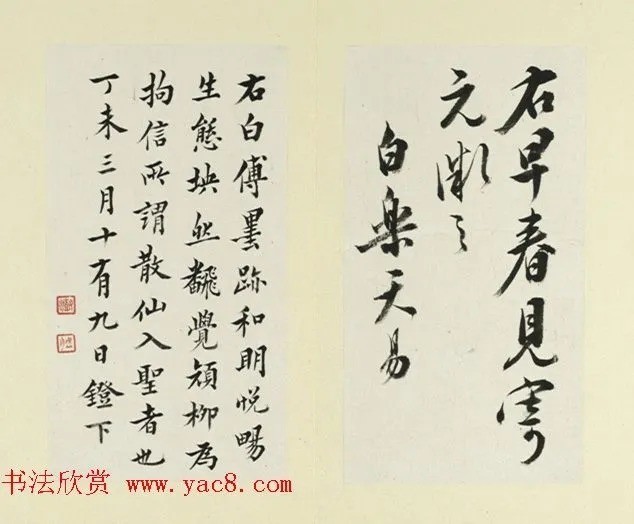 右早春見寄
元微之
白樂天易
右白傅墨跡和明悅暢
生態坱然飜覺顏柳為
拘信所謂散仙入聖者也
丁未三月十有九日鐙下
书法欣赏 www.yac8.com